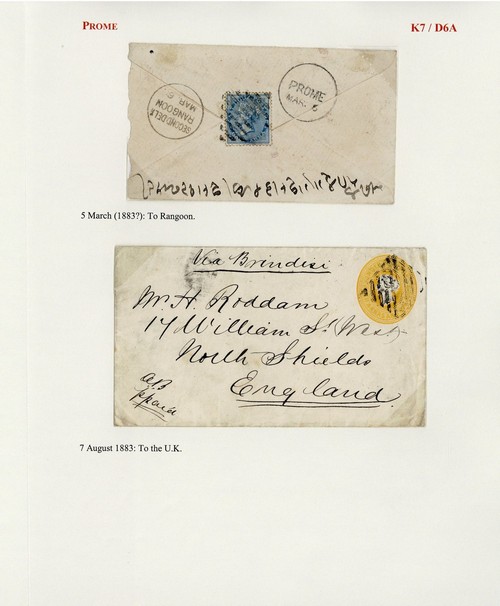 PROME
K7 / D6A
SECOND.DELY
RANGOON
MAR. 6
PROME
MAR. 5
5 March (1883?): To Rangoon.
Via Brindisi
Mr. H. Roddam
17 William St West
North Shields
England
7 August 1883: To the U.K.